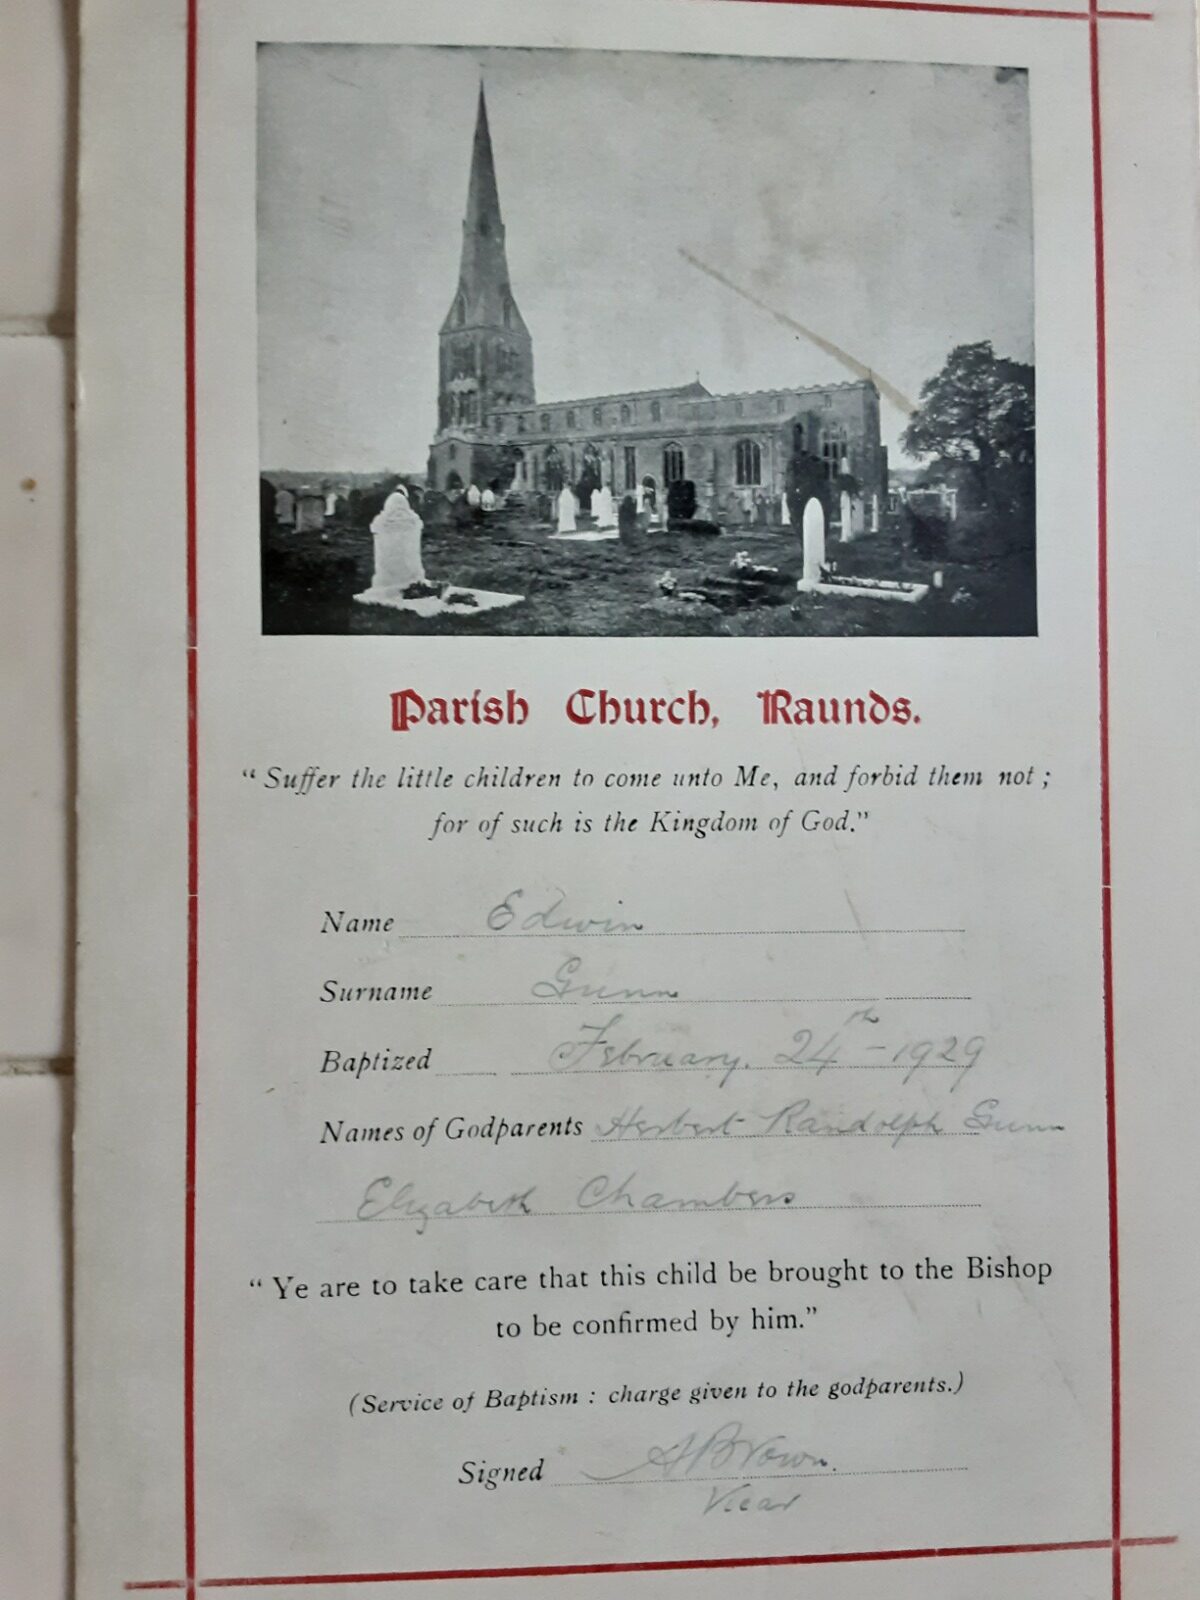 Parish Church, Raunds.
“Suffer the little children to come unto Me, and forbid them not ;
for of such is the Kingdom of God.”
Name Edwin
Surname Gunn
Baptized February. 24th - 1929
Names of Godparents Herbert Randolph Gunn
Elizabeth Chambers
“Ye are to take care that this child be brought to the Bishop
to be confirmed by him.”
(Service of Baptism : charge given to the godparents.)
Signed A Brown.
Vicar